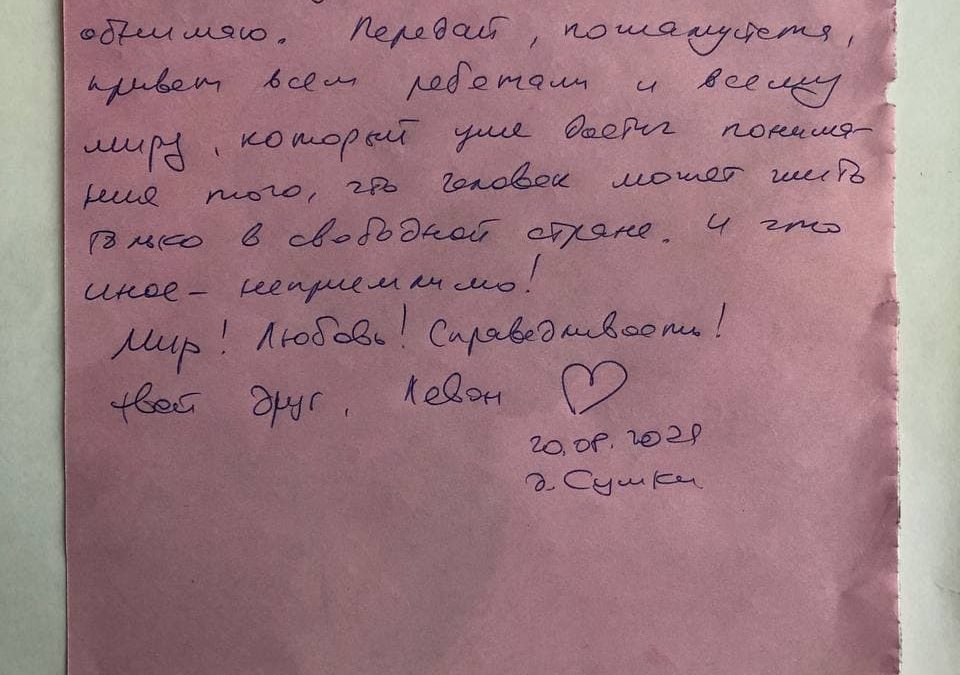 обнимаю. Передай, пожалуйста,
привет всем ребятам и всему
миру, который уже достиг понима-
ния того, что человек может жить
только в свободной стране. И что
иное - неприемлимо!
Мир! Любовь! Справедливость!
твой друг, Левон ♡
20.08.2021
д. Сушки